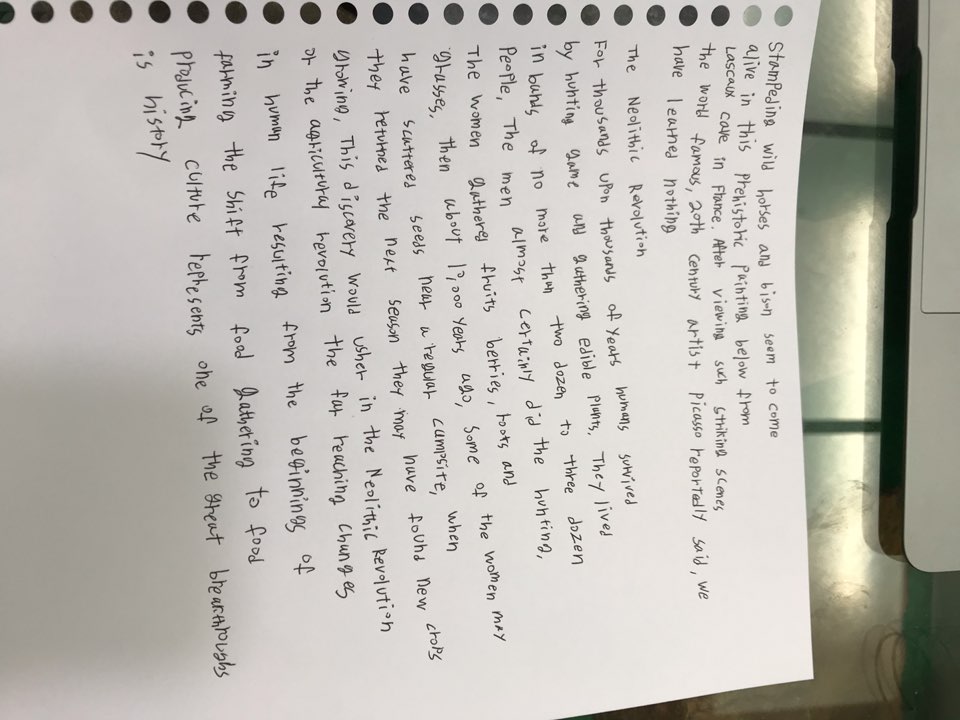 Stampeding wild horses and bison seem to come
alive in this prehistoric painting below from
Lascaux cave in France. After viewing such striking scenes
the world famous, 20th century artist picasso reportedly said, we
have learned nothing
The Neolithic Revolution
For thousands upon thousands of years humans survived
by hunting game and gathering edible plants. They lived
in bands of no more than two dozen to three dozen
people, The men almost certainly did the hunting,
The women gathered fruits berries, roots and
grasses, then about 12,000 years ago, some of the women may
have scattered seeds near a regular campsite, when
they returned the next season they may have found new crops
growing, This discovery would usher in the Neolithic Revolution
or the agricultural revolution the far reaching changes
in human life resulting from the beginnings of
farming the shift from food gathering to food
producing culture represents one of the great breakthroughs
is history